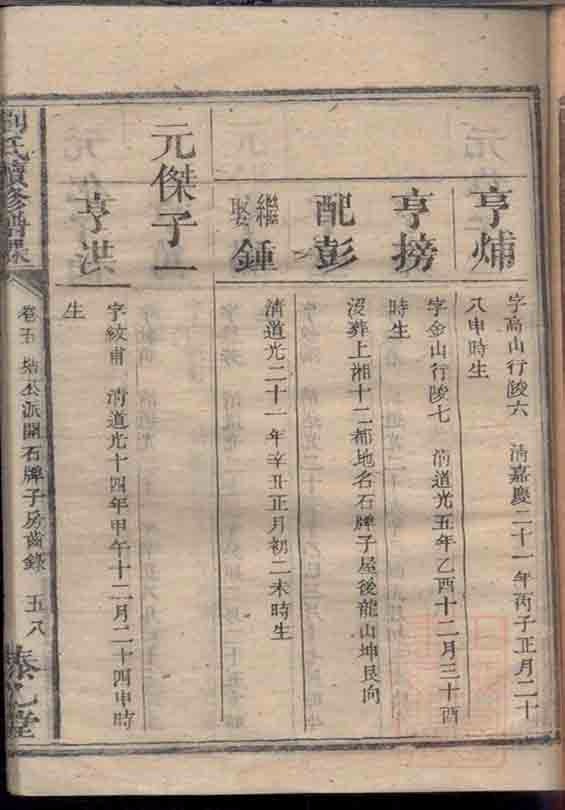 亨炥
字高山行陵六 清嘉慶二十一年丙子正月二十
八申時生
亨搒
字金山行陵七 清道光五年乙酉十二月三十酉
時生
配彭
沒葬上湘十二都地名石牌子屋後龍山坤艮向
繼娶鍾
清道光二十一年辛丑正月初二未時生
元傑子一
亨洪
字紋甫 清道光十四年甲午十二月二十四申時
生
劉氏續修譜
卷 公派開石牌子房齒錄 五八
堂